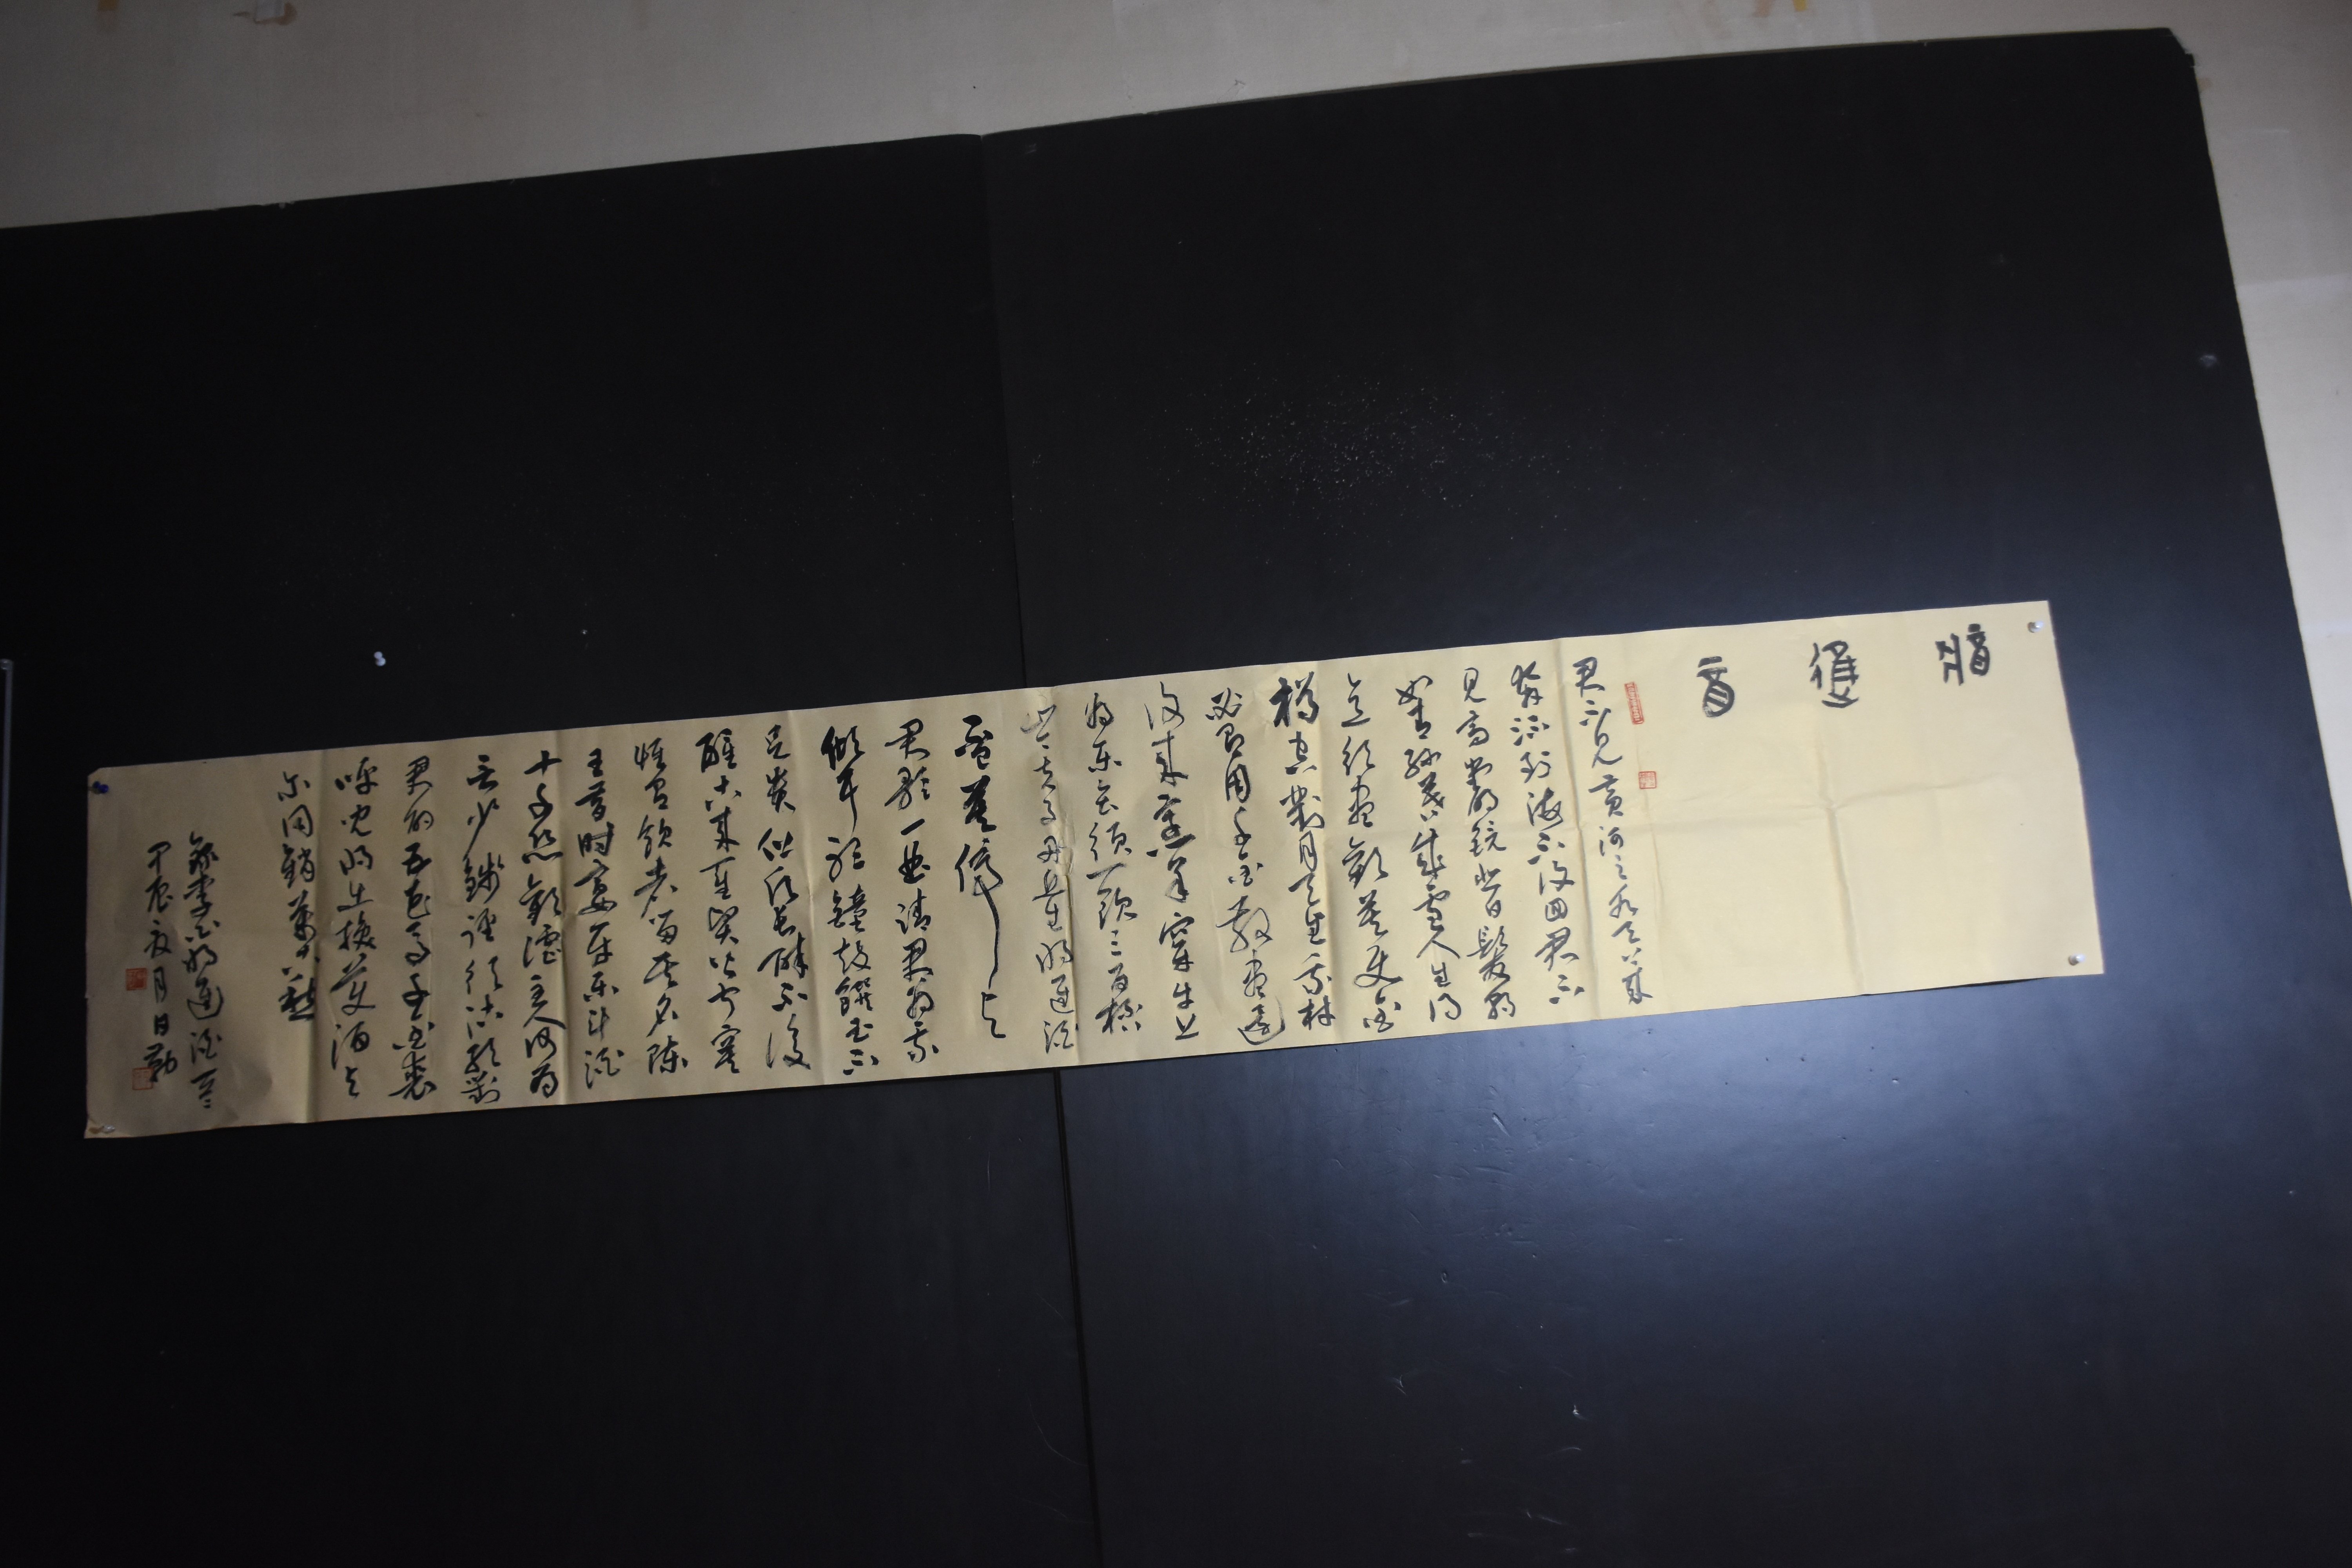 將進酒
君不见黄河之水天上来
奔流到海不復回君不
見高堂明鏡悲白髮朝
如青絲暮成雪人生得
意须盡歡莫使金
樽空對月天生我材
必有用千金散盡還
復来烹羊宰牛且
為樂會須一飲三百杯
岑夫子丹丘生將進酒
盃莫停与
君歌一曲請君為我
傾耳聽鐘鼓饌玉不
足貴但願長醉不復
醒古來聖賢皆寂寞
惟有飲者留其名陳
王昔時宴平樂斗酒
十千恣歡謔主人何為
言少錢徑須沽取對
君酌五花馬千金裘
呼兒將出換美酒与
尔同銷萬古愁
錄李白將進酒
甲辰夏月日勤